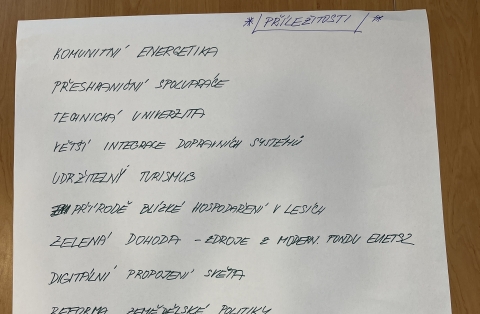 * PŘÍLEŽITOSTI *
KOMUNITNÍ ENERGETIKA
PŘESHRANIČNÍ SPOLUPRÁCE
TECHNICKÁ UNIVERZITA
VĚTŠÍ INTEGRACE DOPRAVNÍCH SYSTÉMŮ
UDRŽITELNÝ TURISMUS
PŘÍRODĚ BLÍZKÉ HOSPODAŘENÍ V LESÍCH
ZELENÁ DOHODA - ZDROJE Z MODERN. FONDU EU ETS2
DIGITÁLNÍ PROPOJENÍ SVĚTA
REFORMA ZEMĚDĚLSKÉ POLITIKY